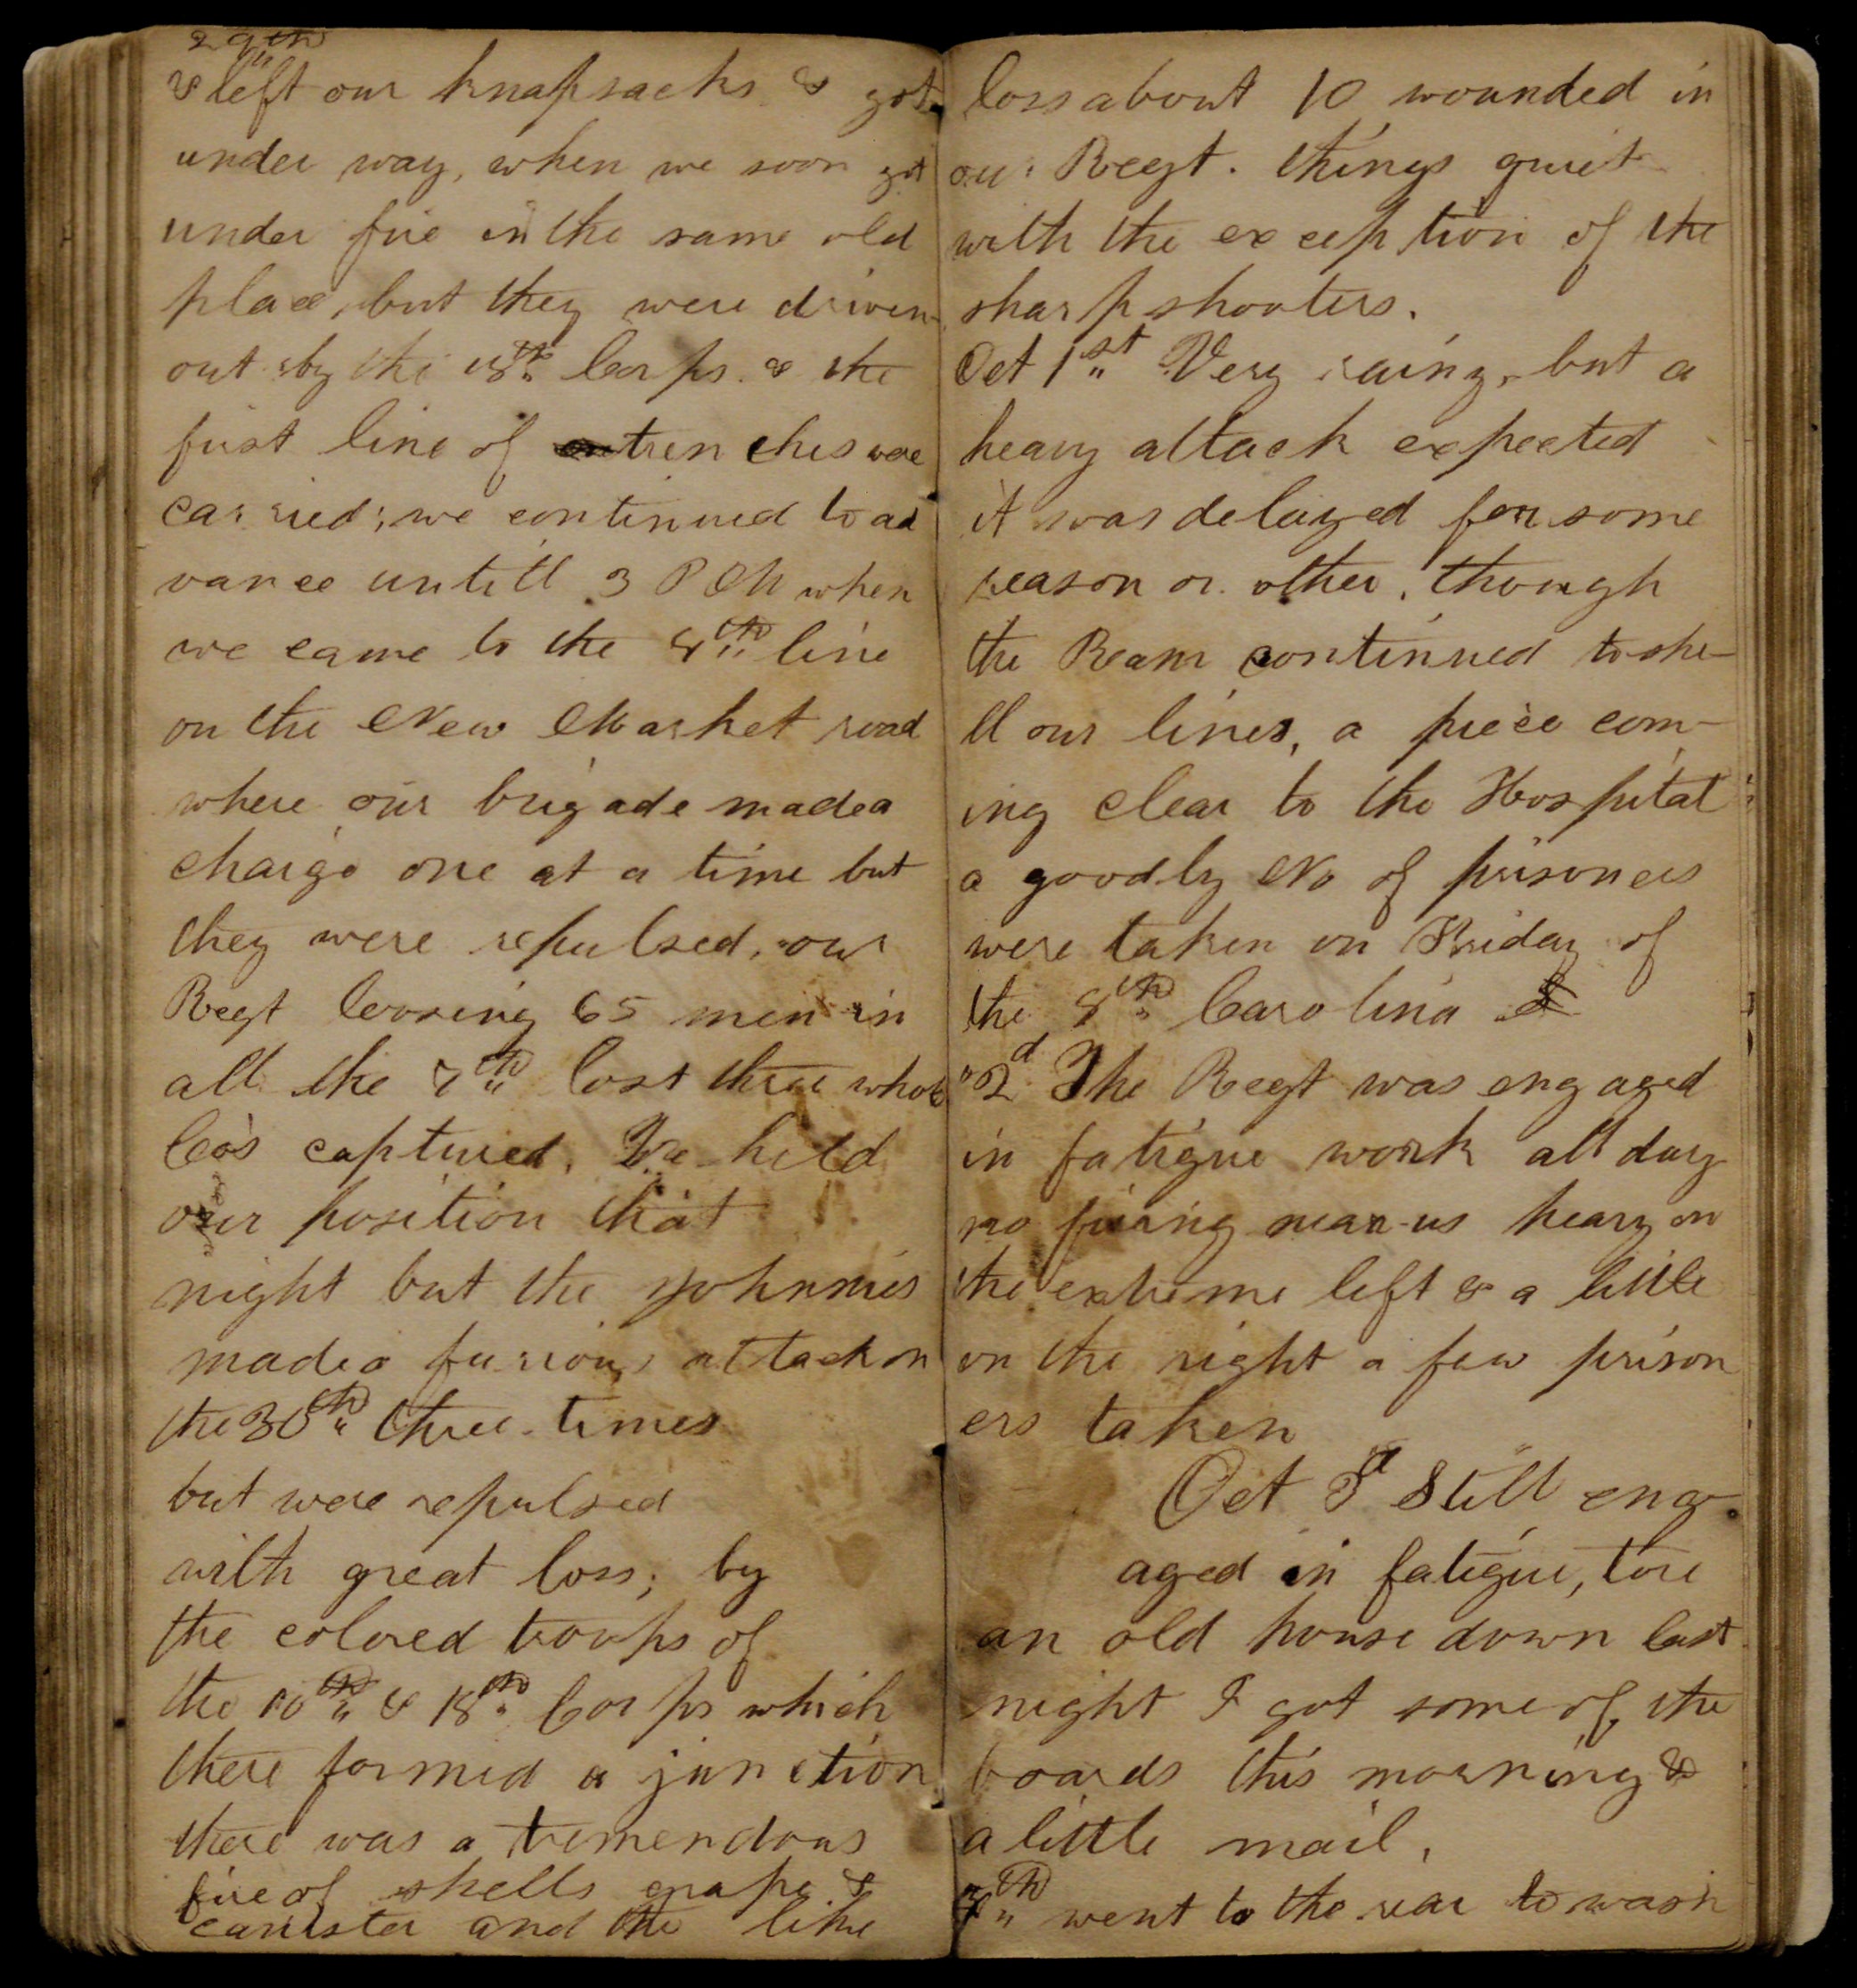 29th
& left our knapsacks & got
under way, when we soon got
under fire in the same old
place, but they were driven
out by the 18th Corps. & the
first line of trenches were
carried; we continued to ad
vance untill 3 PM when
we came to the 4th line
on the New Market road
where our brigade made a
charge one at a time but
they were repulsed, our
Regt loosing 65 men in
all the 7th lost three whole
Co's captured, We held
our position that
night but the Johnnies
made a furious attack on
the 30th three times
but were repulsed
with great loss; by
the colored troops of
the 10th & 18th Corps which
there formed a junction
there was a tremendous
fire of shells grape &
canister and the like
loss about 10 wounded in
our Regt. things quiet
with the exception of the
sharpshooters.
Oct 1st Very rainy, but a
heavy attack expected
it was delayed for some
reason or other, though
the Ream continued to she-
ll our lines, a piece com-
ing clear to the Hospital
a goodly No of prisoners
were taken on Friday of
the 8th Carolina
"2d The Regt was engaged
in fatigue work all day
no firing near us heavy on
the extreme left & a little
on the right a few prison
ers taken
Oct 3d Still eng-
aged in fatigue, tore
an old house down last
night I got some of the
boards this morning &
a little mail,
4th went to the rear to wash